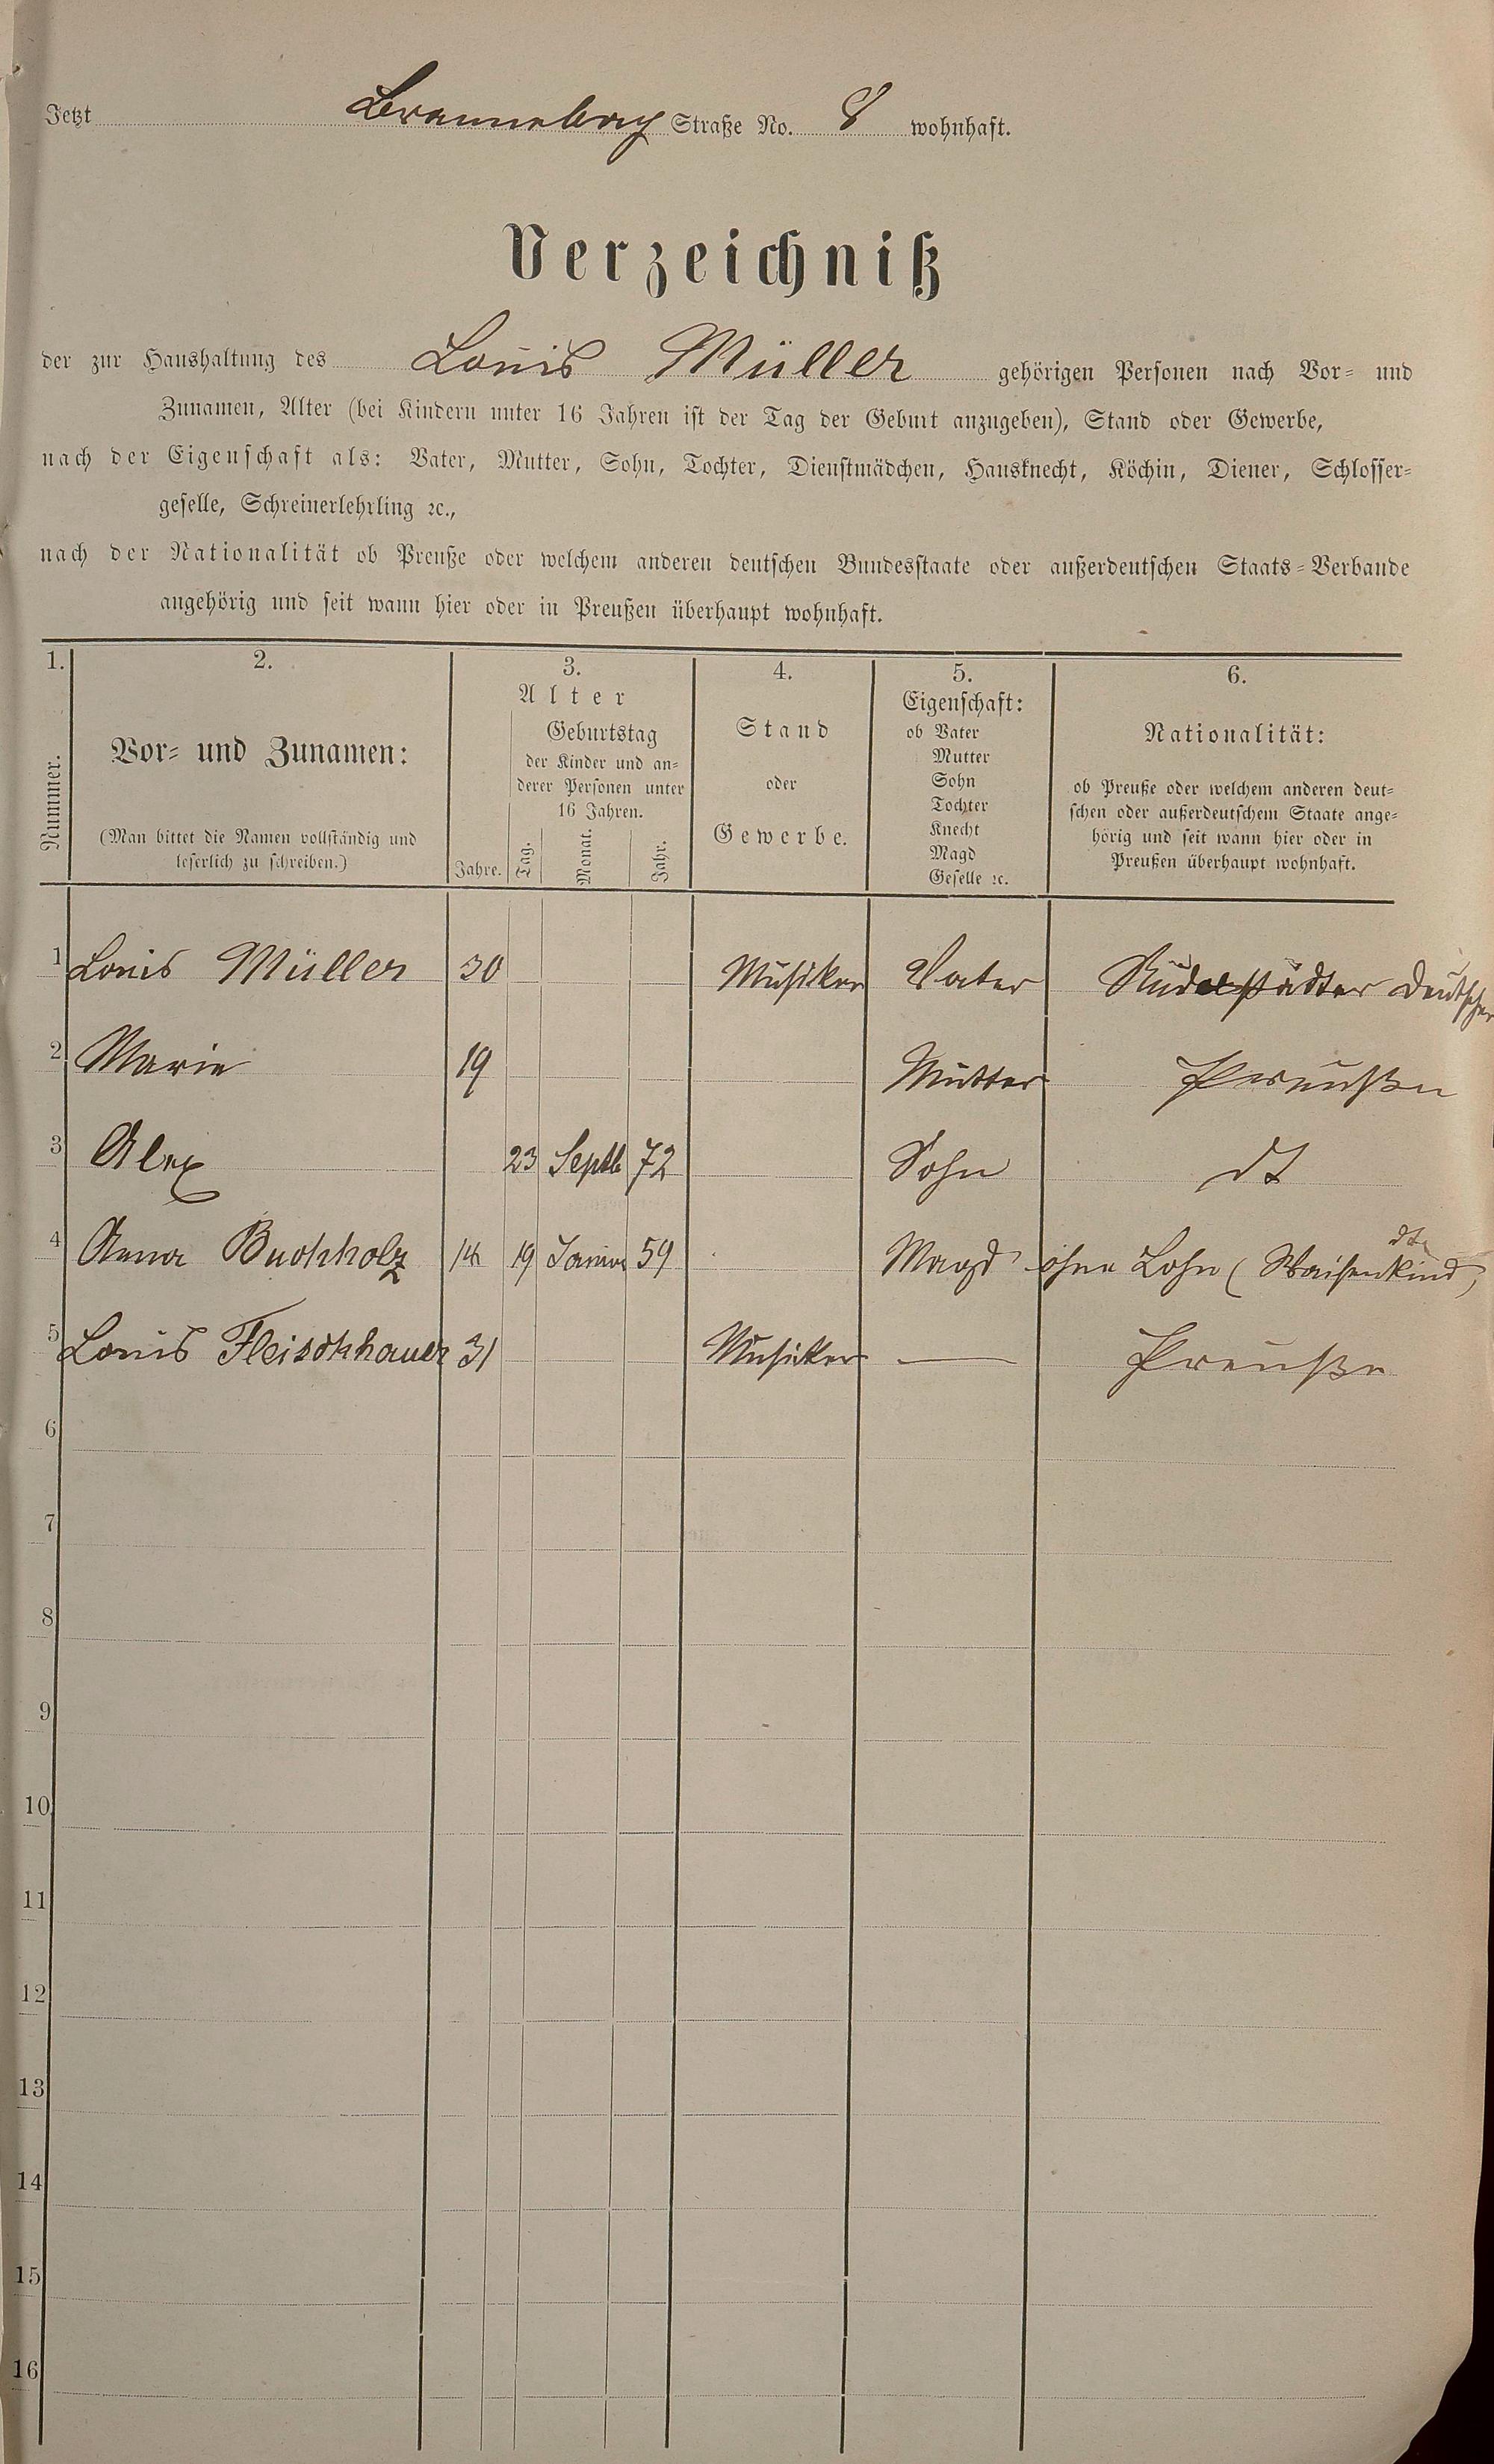 Jetzt Straße No. 8 wohnhaft.
Verzeichniß
der zur Haushaltung des Louis Müller gehörigen Personen nach Vor- und
Zunamen, Alter (bei Kindern unter 16 Jahren ist der Tag der Geburt anzugeben), Stand oder Gewerbe,
nach der Eigenschaft als: Vater, Mutter, Sohn, Tochter, Dienstmädchen, Hausknecht, Köchin, Diener, Schlosser-
geselle, Schreinerlehrling ꝛc.,
nach der Nationalität ob Preuße oder welchem anderen deutschen Bundesstaate oder außerdeutschen Staats-Verbande
angehörig und seit wann hier oder in Preußen überhaupt wohnhaft.
1.
Nummer.
2.
Vor- und Zunamen:
(Man bittet die Namen vollständig und
leserlich zu schreiben.)
3.
Alter
Jahre.
Geburtstag
der Kinder und an-
derer Personen unter
16 Jahren.
Tag. Monat. Jahr.
4.
Stand
oder
Gewerbe.
5.
Eigenschaft:
ob Vater
Mutter
Sohn
Tochter
Knecht
Magd
Geselle ꝛc.
6.
Nationalität:
ob Preuße oder welchem anderen deut-
schen oder außerdeutschem Staate ange-
hörig und seit wann hier oder in
Preußen überhaupt wohnhaft.
1 Louis Müller 30 Musiker Vater Rudolstädter Deutscher
2 Marie 19 Mutter Preußen
3 Alex 23 Septb 72 Sohn dt
4 Anna Buchholz 14 19 Januar 59 Magd ohne Lohn (Waisenkind) dto
5 Louis Fleischhauer 31 Musiker — Preuße
6
7
8
9
10
11
12
13
14
15
16